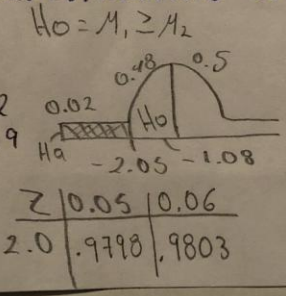 Ho = M₁ ≥ M₂
0.48 0.5
2 0.02
9 Ho
Ha
-2.05 -1.08
Z 0.05 0.06
2.0 .9798 .9803